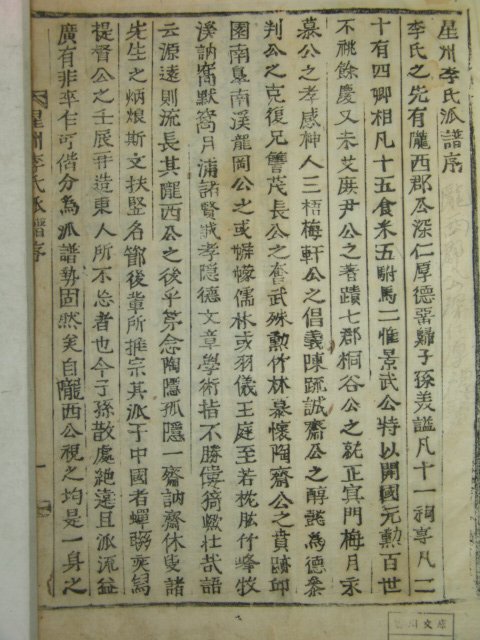 星州李氏派譜序
李氏之先有隴西郡公深仁厚德蕃衍子孫美諡凡十一祠享凡二
十有四卿相凡十五食米五駙馬二惟景武公特以開國元勳百世
不祧餘慶又未艾蕨尹公之著蹟七郡桐谷公之就正宜門梅月汞
慕公之孝感神人三梧梅軒公之倡義陳疏誠齋公之醇懿為德參
判公之克復兄讐茂長公之奮武殊勲竹林慕懷陶齋公之賁跡邱
園南臯南溪龍岡公之或幪儒林或羽儀王庭至若枕肱竹峰牧
溪訥窩默窩月浦諸賢誠孝隱德文章學術指不勝僂猗歟壯哉語
云源遠則流長其隴西公之後乎第念陶隱孤隱一齋訥齋休叟諸
先生之炳烺斯文扶竪名節後軰所推宗其派于中國者蟬聯奕舃
提督公之壬辰再造東人所不忘者也今子孫散處絶遠且派流益
廣有非卒乍可偕分為派譜勢固然矣自隴西公視之均是一身之
星州李氏派譜序
一